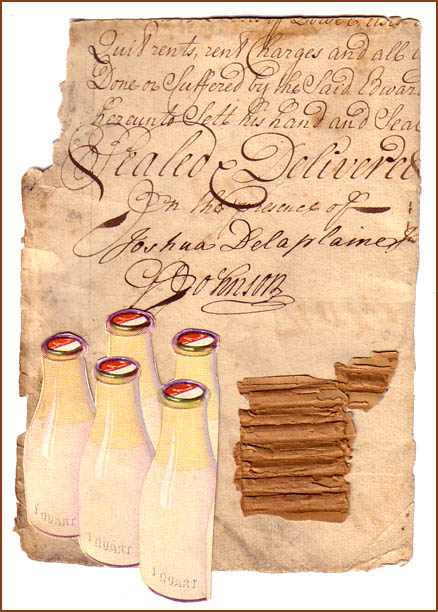 of
Quit rents, rent Charges and all
Done or Suffered by the Said Edwar
hereunto Sett his hand and Sea
Sealed & Delivered
In the presence of
Joshua Delaplaine
Johnson
1 QUART
1 QUART
1 QUART